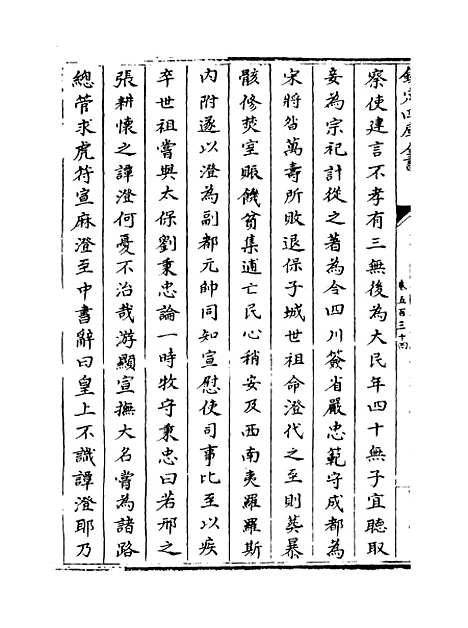 欽定四庫全書
卷五百三十四
察使建言不孝有三無後為大民年四十無子宜聽取
妾為宗祀計從之著為令四川簽省嚴忠範守成都為
宋將昝萬壽所敗退保子城世祖命澄代之至則葬暴
骸修焚室賑饑貧集逋亡民心稍安及西南夷羅羅斯
內附遂以澄為副都元帥同知宣慰使司事比至以疾
卒世祖嘗與太保劉秉忠論一時牧守秉忠曰若邢之
張耕懷之譚澄何憂不治哉游顯宣撫大名嘗為諸路
總管求虎符宣麻澄至中書辭曰皇上不識譚澄耶乃